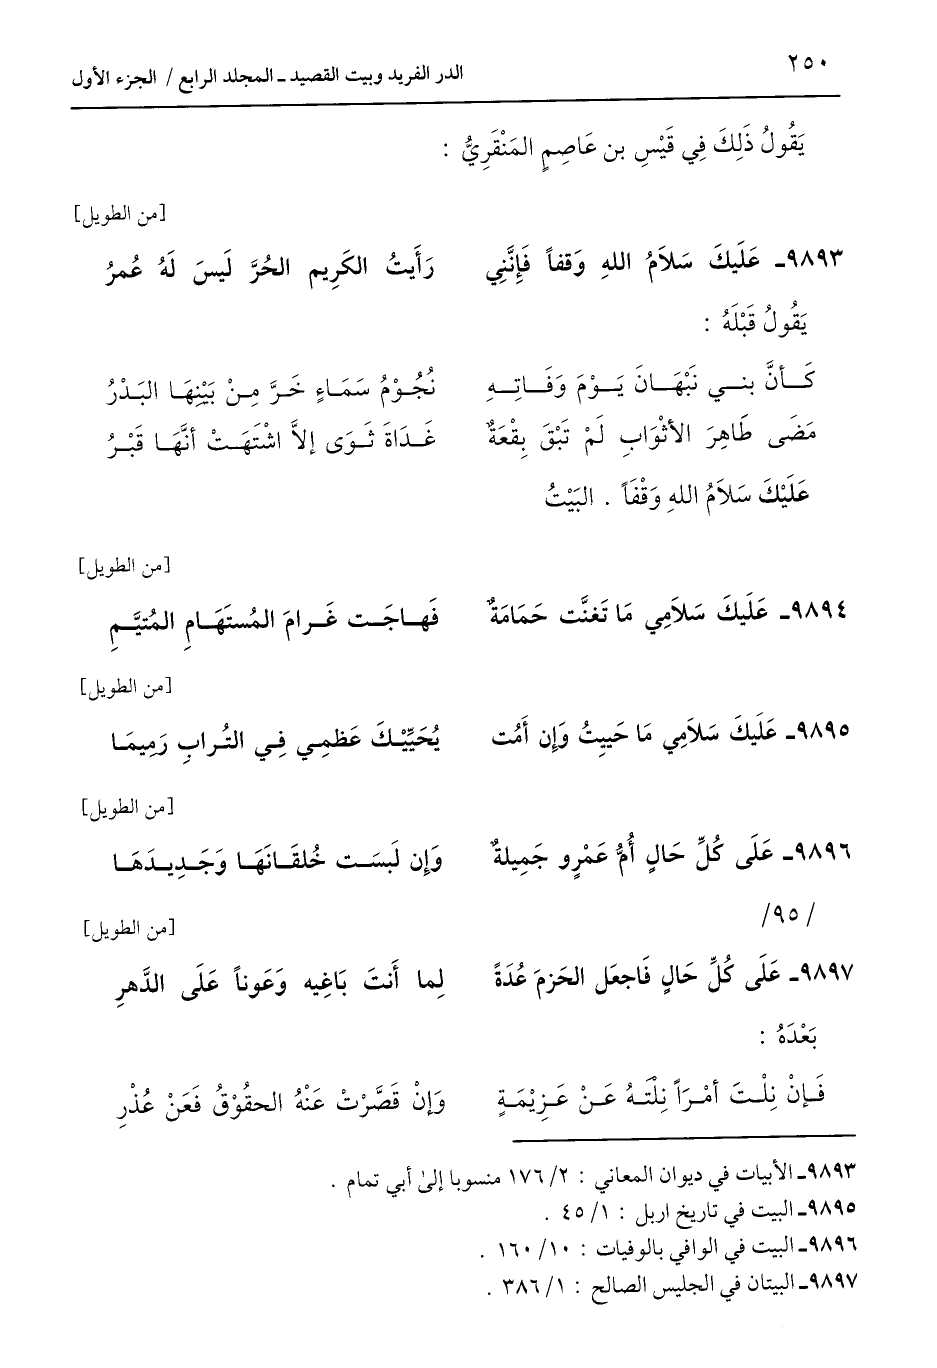 ٢٥٠
الدر الفريد وبيت القصيد ـ المجلد الرابع / الجزء الأول
يَقُولُ ذَلِكَ فِي قَيْسِ بن عَاصِمٍ المَنْقَرِيُّ :
[من الطويل]
٩٨٩٣ـ عَلَيكَ سَلاَمُ اللهِ وَقفاً فَإِنَّنِي رَأَيتُ الكَرِيم الحُرَّ لَيسَ لَهُ عُمرُ
يَقُولُ قَبْلَهُ :
كَـأنَّ بنـي نَبْهَـانَ يَـوْمَ وَفَـاتـهِ نُجُوْمُ سَمَـاءٍ خَـرَّ مِـنْ بَيْنِهَـا البَـدْرُ
مَضَى طَاهِرَ الأثْوَابِ لَمْ تَبْقَ بِقْعَةٌ غَـدَاةَ ثَـوَى إلاَّ اشْتَهَـتْ أنَّهَـا قَبْـرُ
عَلَيْكَ سَلاَمُ اللهِ وَقْفَاً . البَيْتُ
[من الطويل]
٩٨٩٤ـ عَلَيكَ سَلاَمِي مَا تَغنَّت حَمَامَةٌ فَهـاجَـت غَـرامَ المُستَهَـامِ المُتيَّـمِ
[من الطويل]
٩٨٩٥ـ عَلَيكَ سَلاَمِي مَا حَييتُ وَإِن أَمُت يُحَيِّيْـكَ عَظمِـي فِـي التُـرابِ رَمِيمَـا
[من الطويل]
٩٨٩٦ـ عَلَى كُلِّ حَالٍ أُمُّ عَمْرٍو جَمِيلةٌ وَإِن لَبسَـت خُلقَـانَهَـا وَجَـدِيـدَهَـا
/ ٩٥/
[من الطويل]
٩٨٩٧ـ عَلَى كُلِّ حَالٍ فَاجعَل الحَزمَ عُدَةً لِما أَنتَ بَاغِيه وَعَوناً عَلَى الدَّهرِ
بَعْدَهُ :
فَـإنْ نِلْـتَ أمْـرَاً نِلْتَـهُ عَـنْ عَـزِيْمَـةٍ وَإنْ قَصَّرْتْ عَنْهُ الحقُوْقُ فَعَنْ عُذْرِ
٩٨٩٣ـ الأبيات في ديوان المعاني : ٢/ ١٧٦ منسوبا إلىٰ أبي تمام .
٩٨٩٥ـ البيت في تاريخ اربل : ١/ ٤٥ .
٩٨٩٦ـ البيت في الوافي بالوفيات : ١٠/ ١٦٠ .
٩٨٩٧ـ البيتان في الجليس الصالح : ١/ ٣٨٦ .